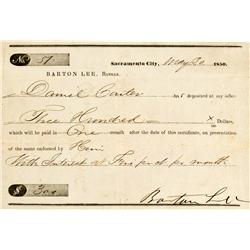 No 51 Sacramento City, May 20 1850.
BARTON LEE, Banker.
Daniel Carter has deposited at my office
Three Hundred x/100 Dollars,
which will be paid in One month after the date of this certificate, on presentation
of the same endorsed by Him
With Interest at Five pr ct pr month
$ 300 Barton Lee